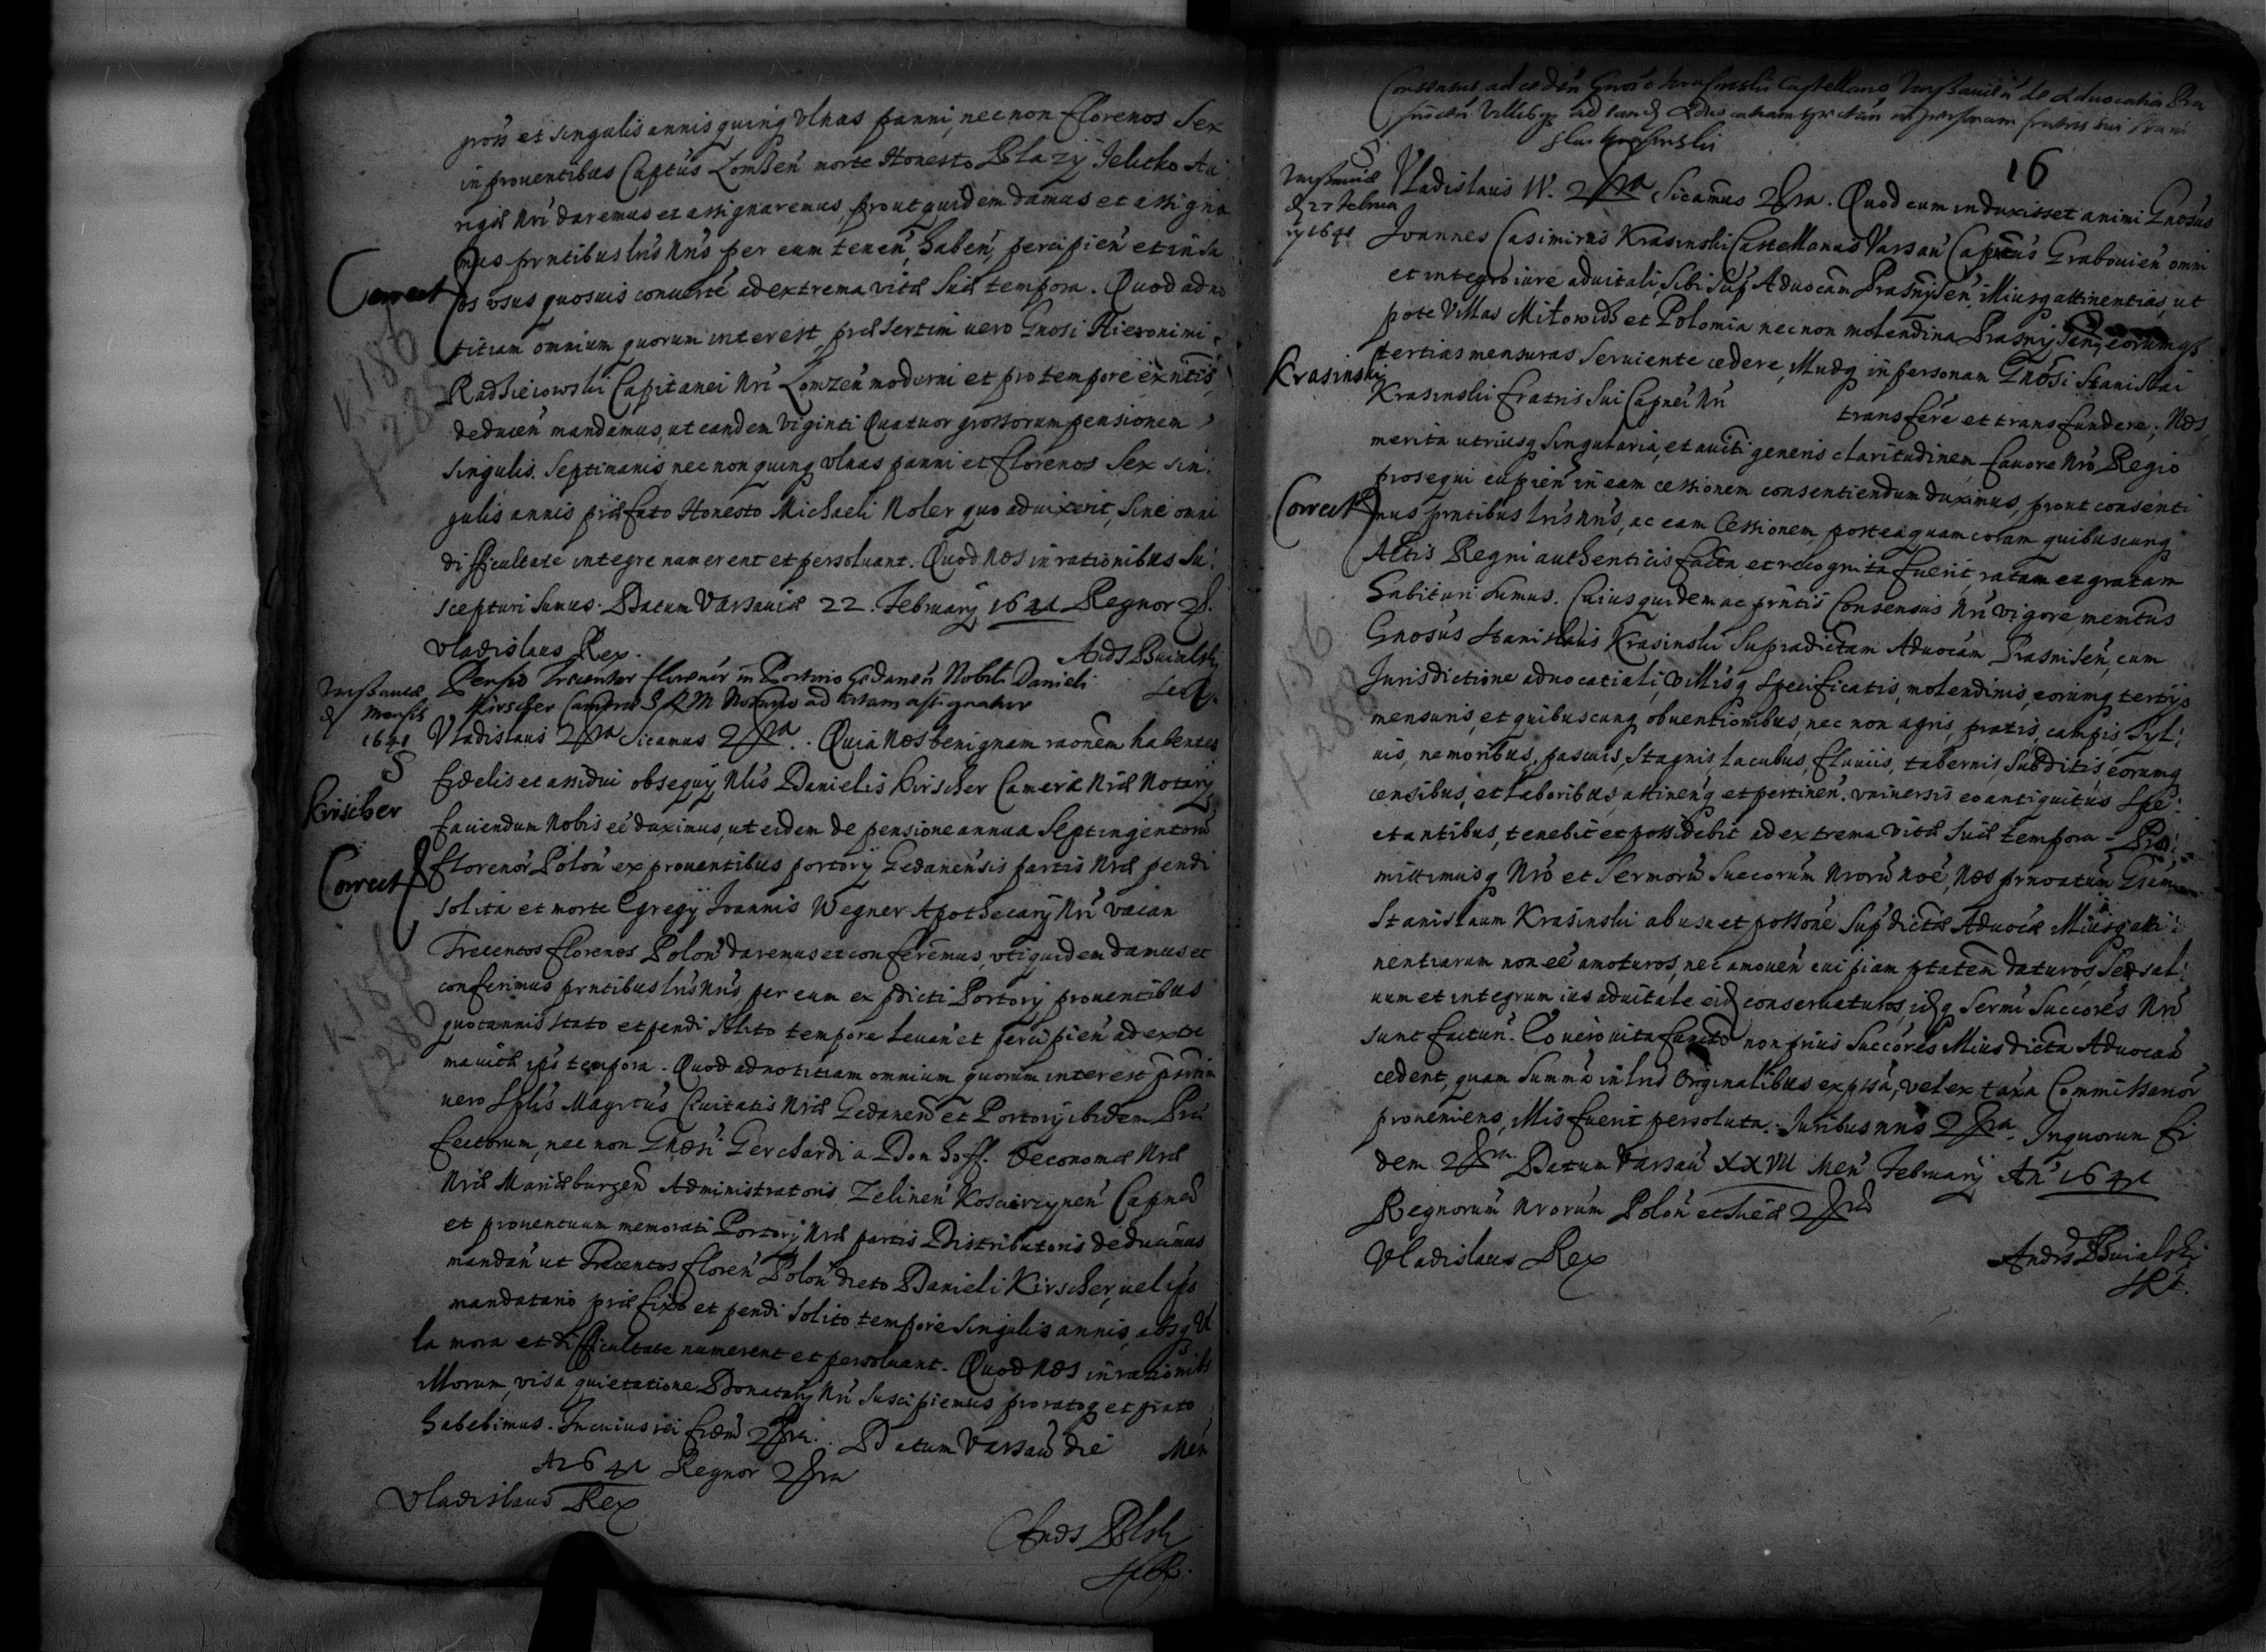 gros et singulis annis quinq ulnas panni, nec non florenos Sex
in proventibus Captus Lomzen morte Honesto Blazij Jelitko Au
rigae Nri daremus et assignaremus, prout quidem damus et assigna
mus prntibus lris Nris per eum tenen, haben, percipien et in su
os usus quosvis converte ad extrema vitae suae tempora. Quod ad no
titiam omnium quorum interest, praesertim vero Gnosi Hieronimi
Radzieiowski Capitanei Nri Lomzen moderni et pro tempore exntis,
deducen mandamus, ut eandem viginti Quatuor grossorum pensionem
singulis Septimanis, nec non quinq ulnas panni et florenos Sex sin:
gulis annis praefato Honesto Michaeli Noler quo advixerit, sine omni
difficultate integre numerent et persolvant. Quod nos in rationibus su:
scepturi sumus. Datum Varsaviae 22. February 1641 Regnor
Vladislaus Rex.
Ands Buialski
Correct
K. 186
Pensio Trecentor florenor in Portorio Gedanen Nobili Danieli
Kirscher Camerae S R M Notario ad vitam assignatur
Varsaviae
d mensis
1641
Vladislaus Sicamus. Quia Nos benignam raonem habentes
Kirscher
fidelis et assidui obsequij Nlis Danielis Kirscher Camerae Nrae Notarij,
faciendum nobis ee duximus, ut eidem de pensione annua Septingentoru
Correct
florenor Polon ex proventibus portorij Gedanensis partis Nrae pendi
solita et morte Egregij Joannis Wegner Apothecarij Nri vacan
Trecentos florenos Polon daremus et conferemus, uti quidem damus et
conferimus prntibus lris Nris per eum ex pdicti Portorij proventibus
quotannis stato et pendi solito tempore levan et percipien ad extre
ma vitae ips tempora. Quod ad notitiam omnium quorum interest psrtim
vero Splis Magrtus Civitatis Nrae Gedanen et Portorij ibidem Prae
fectorum, nec non Gnosi Gerchardi a Donhoff. Oeconomae Nrae
Nrae Mariaeburgen Administratoris Zelinen Koscierzynen Capnei
et proventuum memorati Portorij Nrae partis Distributoris deducimus
mandan ut Trecentos floren Polon dicto Danieli Kirscher, vel ips
mandatario praefixo et pendi solito tempore singulis annis, absq Ul
la mora et difficultate numerent et persolvant. Quod Nos in rationibs
illorum, visa quietatione Donatarij Nri suscipiemus pro ratoq et grato
habebimus. In cuius rei fidem. Datum Varsav die Men
A 1641 Regnor
Vladislaus Rex
Ands Blski
K. 186
286
Consensus ad cedendum Gnoso Krasinski Castellano Varsavien de Advocatia Pra
16
Varsaviae
d 27 Februa
rij 1641
Vladislaus IV. Sicamus. Quod cum induxisset animi Gnosus
Joannes Casimirus Krasinski Castellanus Varsav Captus Grabovien omni
et integro iure advitali, sibi sup Advocam Prasnysen, illiusq attinentias, ut
pote Villas Mitowids et Polomia nec non molendina Prasnysen, eorumq
Krasinski
tertias mensuras serviente cedere, illudq in personam Gnosi Stanislai
Krasinski fratris sui Capnei Nri transfere et transfundere; Nos,
merita utriusq singularia, et aviti generis claritudinem favore Nro Regio
prosequi cupien in eam cessionem consentiendum duximus, prout consenti
Correct
mus prntibus lris Nris, ac eam Cessionem, posteaquam coram quibuscunq
Actis Regni authenticis facta et recognita fuerit, ratam et gratam
habituri sumus. Cuius quidem ac prntis Consensus Nri vigore, memtus
Gnosus Stanislaus Krasinski supradictam Advocam Prasnisen, cum
Jurisdictione advocatiali, villisq specificatis, molendinis, eorumq tertijs
mensuris, et quibuscunq obventionibus, nec non agris, pratis, campis, Syl:
vis, nemoribus, pascuis, stagnis, lacubus, fluviis, tabernis, subditis, eorumq
censibus, et laboribus, attinenq et pertinen. universis eo antiquitus spe:
ctantibus, tenebit et possidebit ad extrema vitae suae tempora. Pro:
mittimusq Nro et Sermoru Succorum Nroru noe, Nos prnoatum Gsum
Stanislaum Krasinski ab usu et possone supdictae Advocae illiusq atti:
nentiarum non ee amoturos, nec amoven cuipiam ptatem daturos, sed sal:
vum et integrum ius advitale eid conservaturos, idq Sermi Succores Nri
sunt facturi. Eo vero vita functo non prius Succores illius dicta Advocae
cedent, quam summa in lris Originalibus expssa, vel ex taxa Commissarior
proveniens, illis fuerit persoluta. Juribus nris. In quorum fi
dem. Datum Varsav XXVII Men February An 1641
Regnorum Nrorum Polon et Sueciae
Vladislaus Rex
Andrs Buialski
SRS.